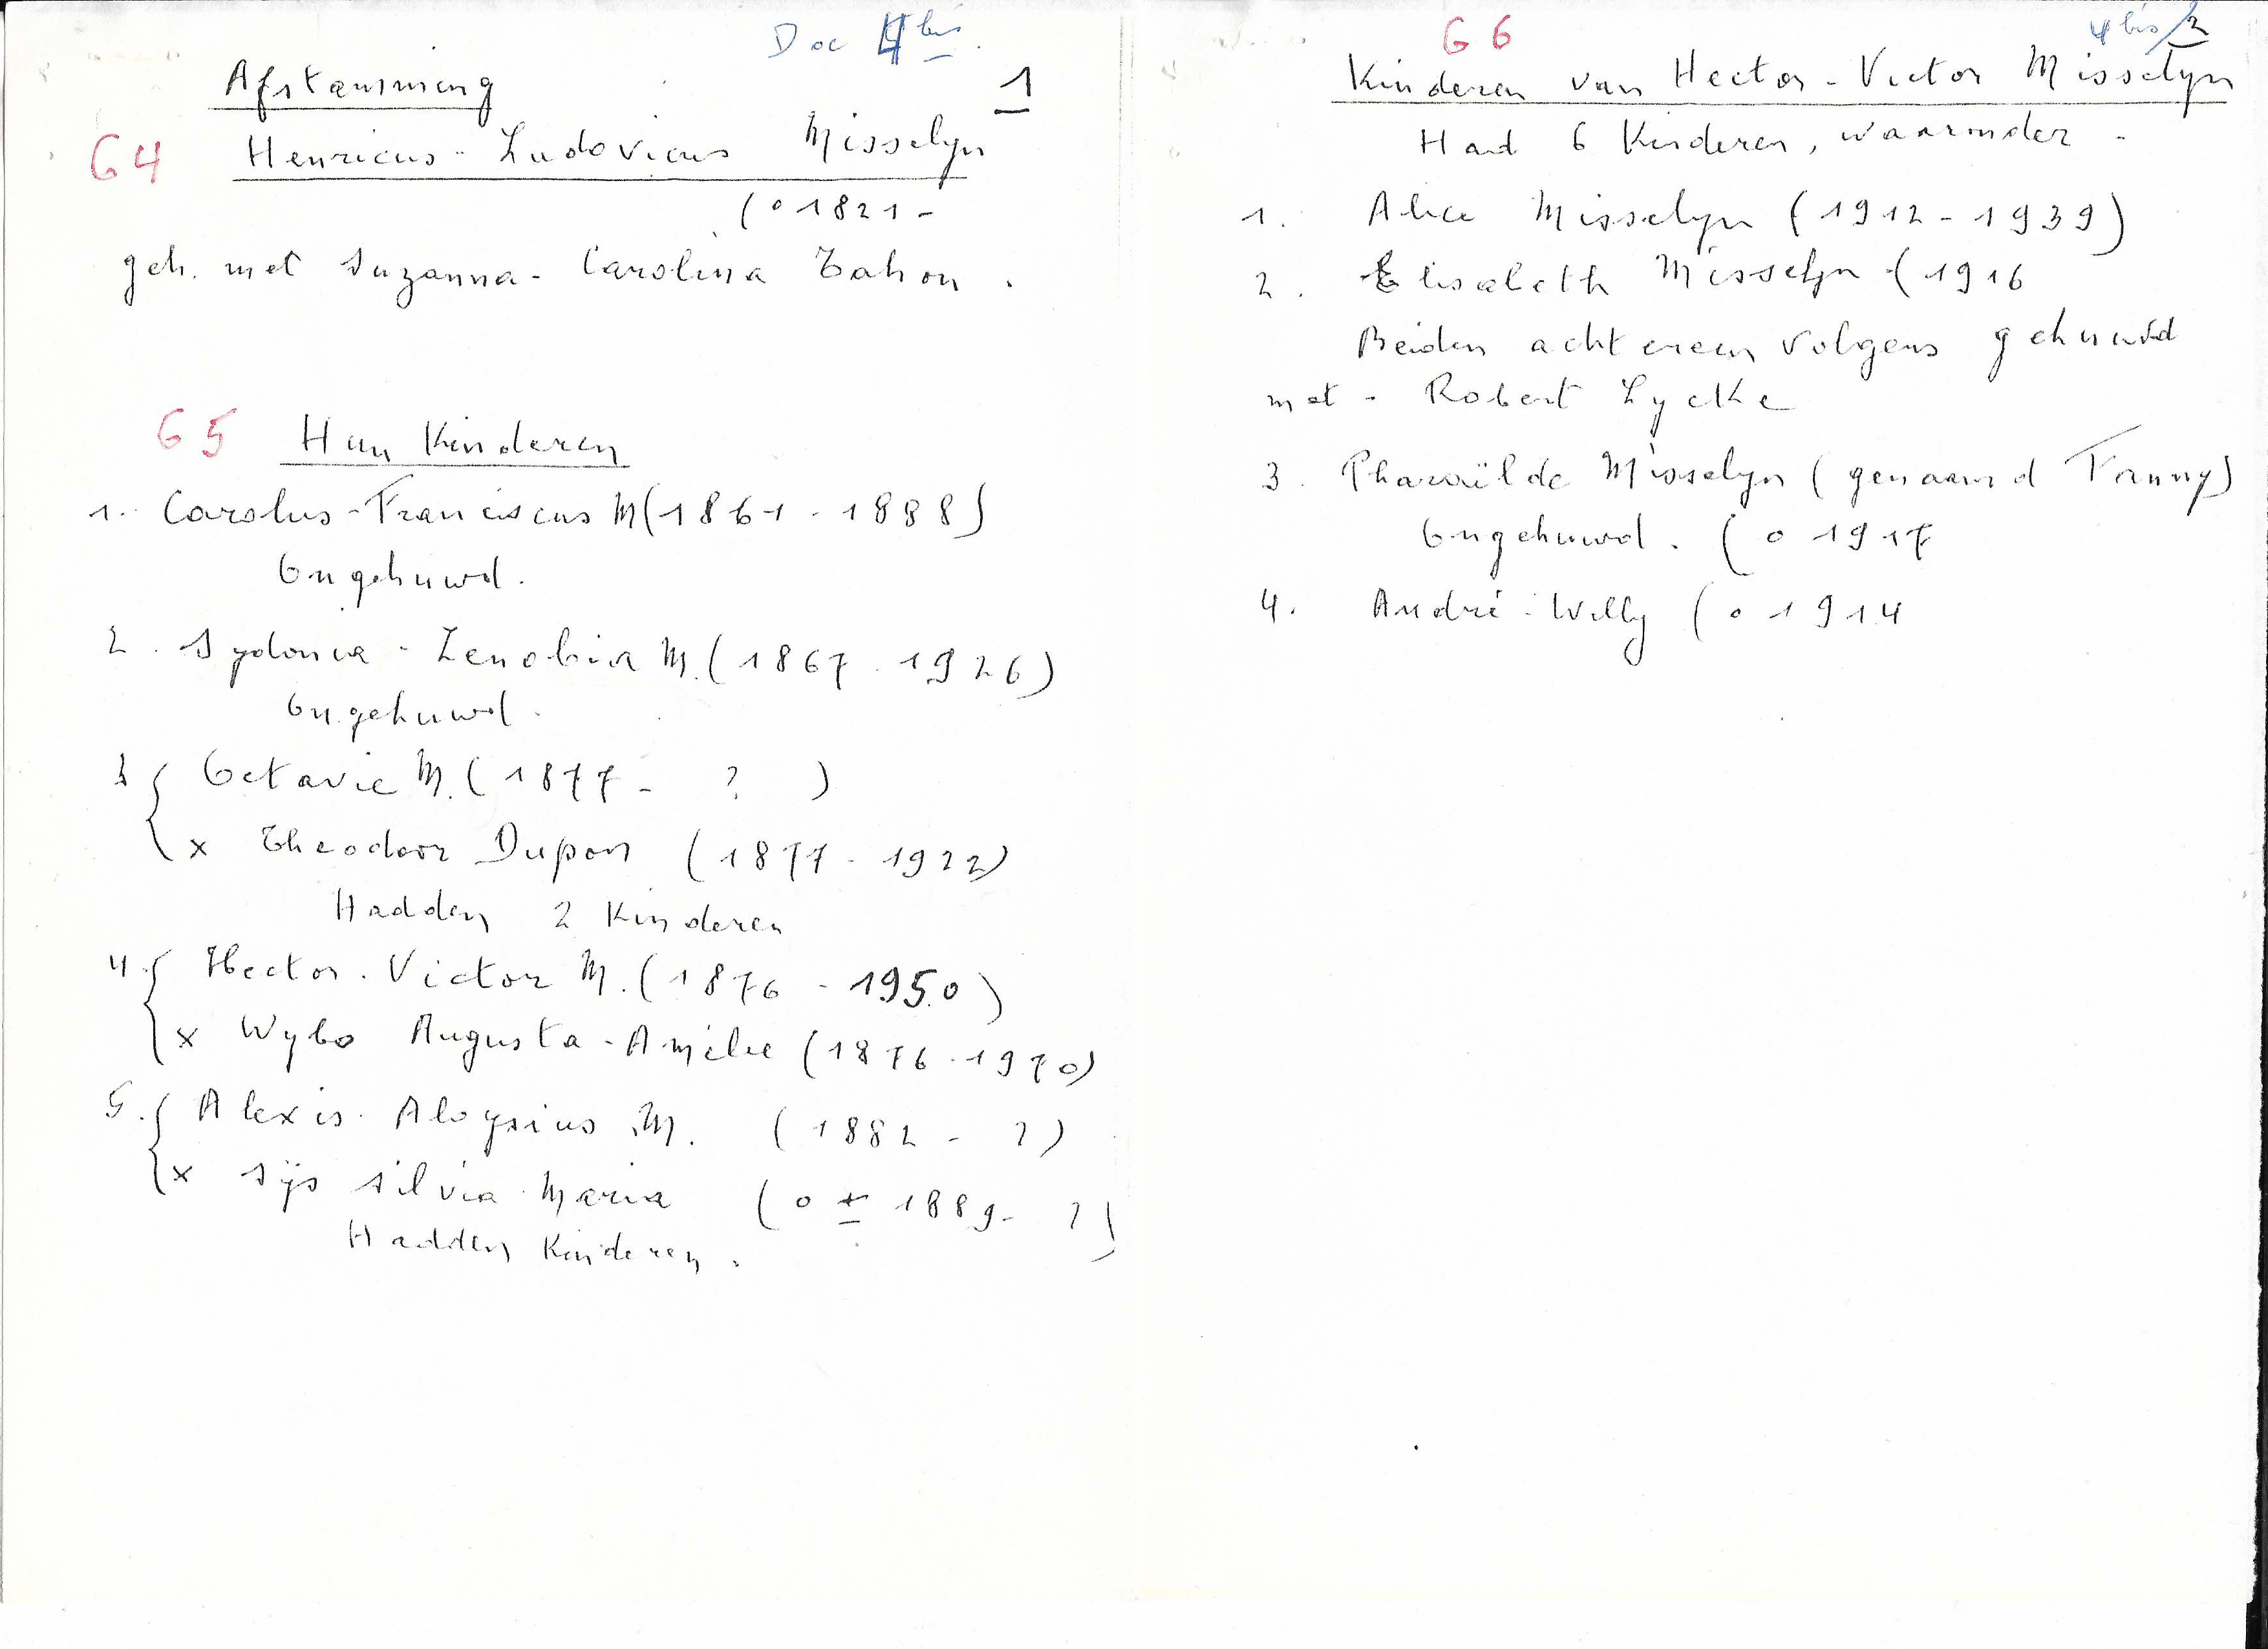 Doc 4bis
1
Afstamming
G4 Henricus - Ludovicus Misselyn
(° 1821 -
geh. met Suzanna - Carolina Tahon.
G5 Hun Kinderen
1. Carolus - Franciscus M (1861 - 1888)
Ongehuwd.
2. Sydonia - Zenobia M. (1867 - 1926)
Ongehuwd.
3 { Octavie M. (1877 - ? )
x Theodoor Dupon (1877 - 1922)
Hadden 2 Kinderen
4. { Hector - Victor M. (1876 - 1950)
x Wybo Augusta - Amelie (1876 - 1970)
5. { Alexis - Aloysius M. (1882 - ?)
x Sijs Silvia - Maria (° ± 1889 - ?)
Hadden Kinderen.
4 bis/2
G6
Kinderen van Hector - Victor Misselyn
Had 6 Kinderen, waaronder -
1. Alice Misselyn (1912 - 1939)
2. Elisabeth Misselyn (1916
Beiden achtereenvolgens gehuwd
met - Robert Lycke
3. Pharaïlde Misselyn (genaamd Fanny)
Ongehuwd. (° 1917
4. André - Willy (° 1914